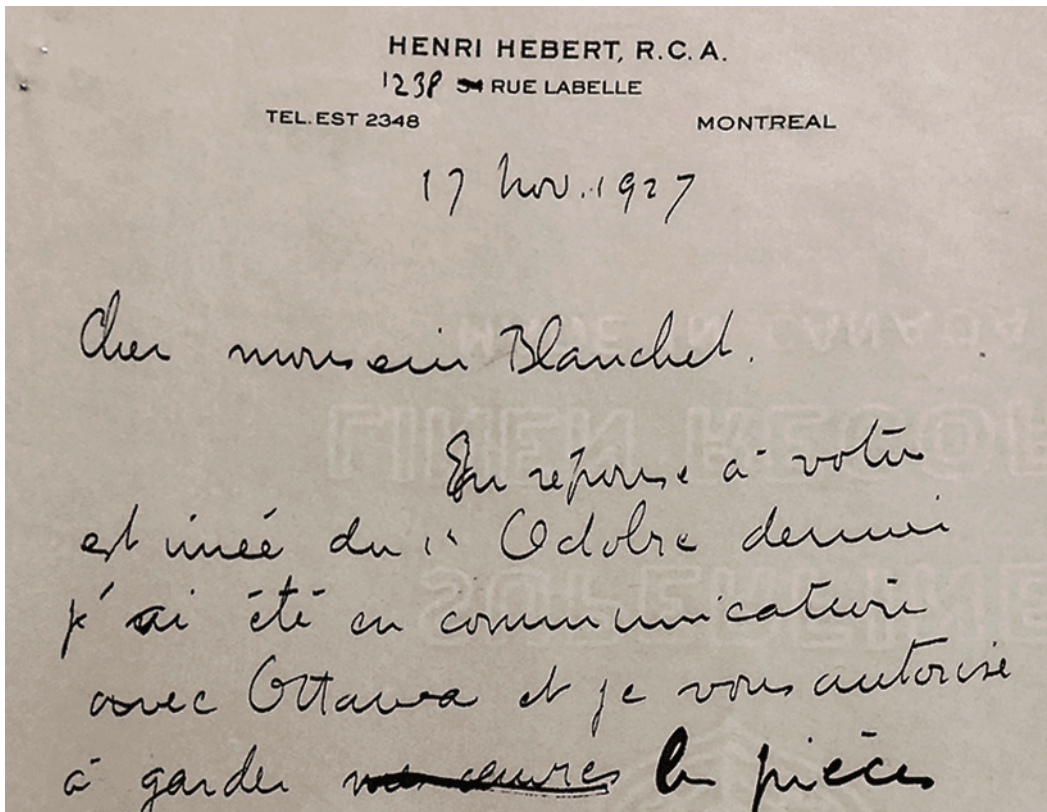 HENRI HEBERT, R.C.A.
1238 RUE LABELLE
TEL. EST 2348 MONTREAL
17 Nov. 1927
Cher monsieur Blanchet.
En réponse à votre
estimée du 1er Octobre dernier
j'ai été en communication
avec Ottawa et je vous autorise
à garder les pièces